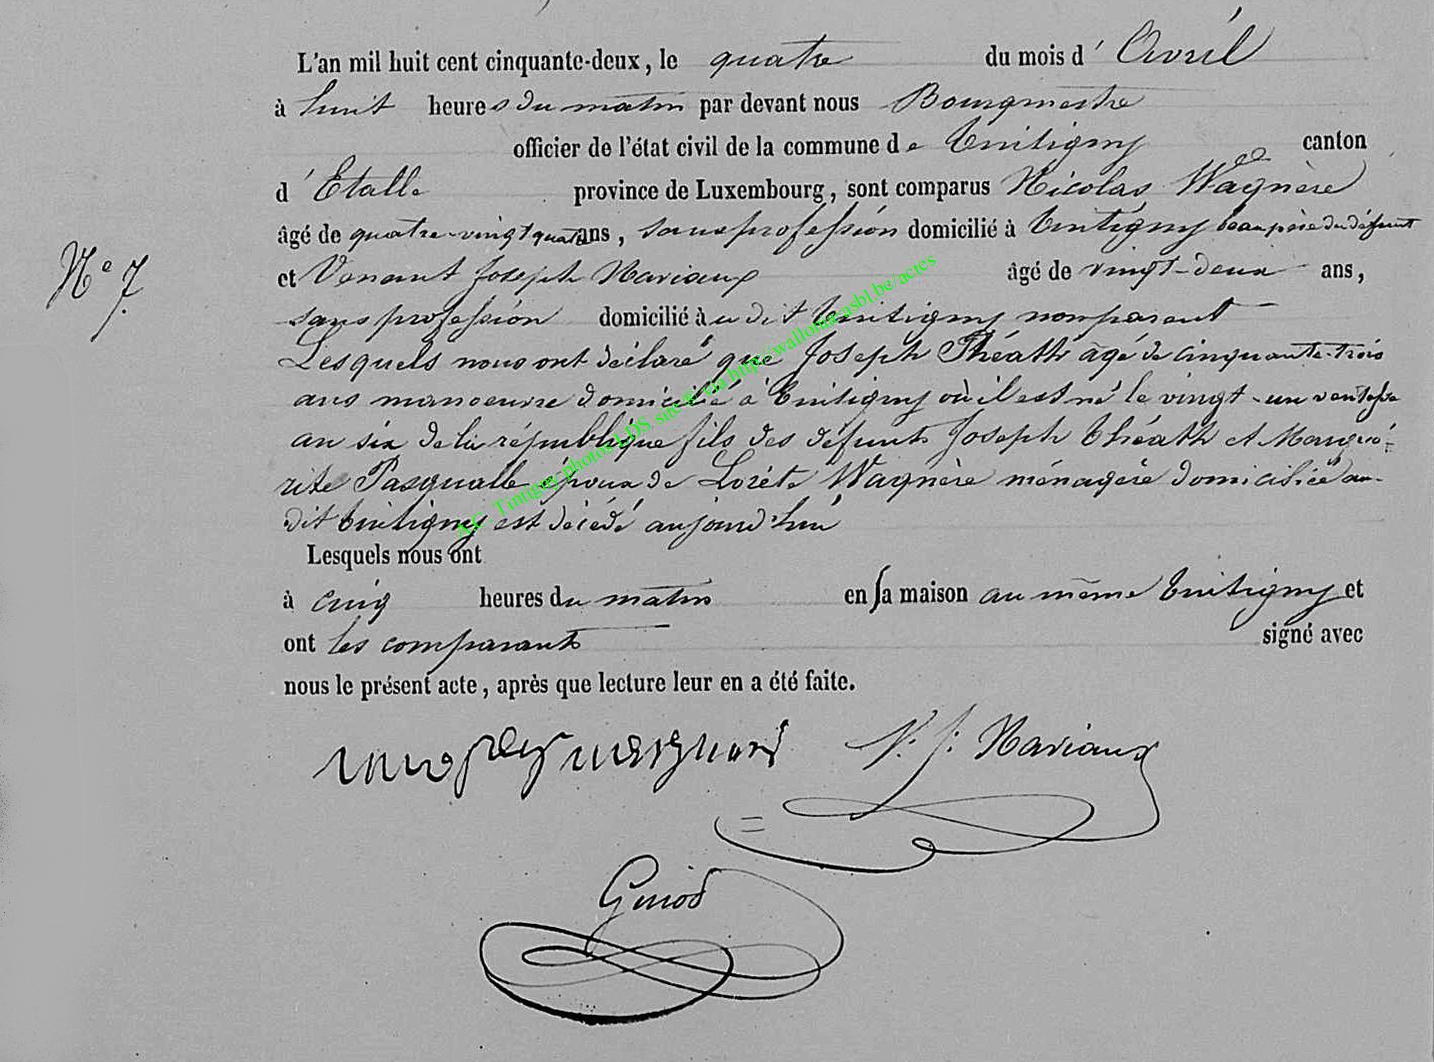 L'an mil huit cent cinquante-deux, le quatre du mois d' Avril
à huit heures du matin par devant nous Bourgmestre
officier de l'état civil de la commune de Tintigny canton
d' Etalle province de Luxembourg, sont comparus Nicolas Wagnère
âgé de quatre-vingt quatre ans, sans profession domicilié à Tintigny beau père du défunt
N° 7.
et Venant Joseph Nariaux âgé de vingt-deux ans,
sans profession domicilié à u dit Tintigny non parent
Lesquels nous ont déclaré que Joseph Théath âgé de cinquante-trois
ans manoeuvre domicilié à Tintigny où il est né le vingt-un ventose
an six de la république fils des défunts Joseph Théath et Margué=
rite Pasqualle époux de Lorète Wagnère ménagère domiciliée au-
dit Tintigny est décédé aujourd'hui
Lesquels nous ont
à cinq heures du matin en sa maison au même Tintigny et
ont les comparants signé avec
nous le présent acte, après que lecture leur en a été faite.
V. J. Nariaux
Guiod
A.C. Tintigny photos LDS site © via http://wallonia-asbl.be/actes